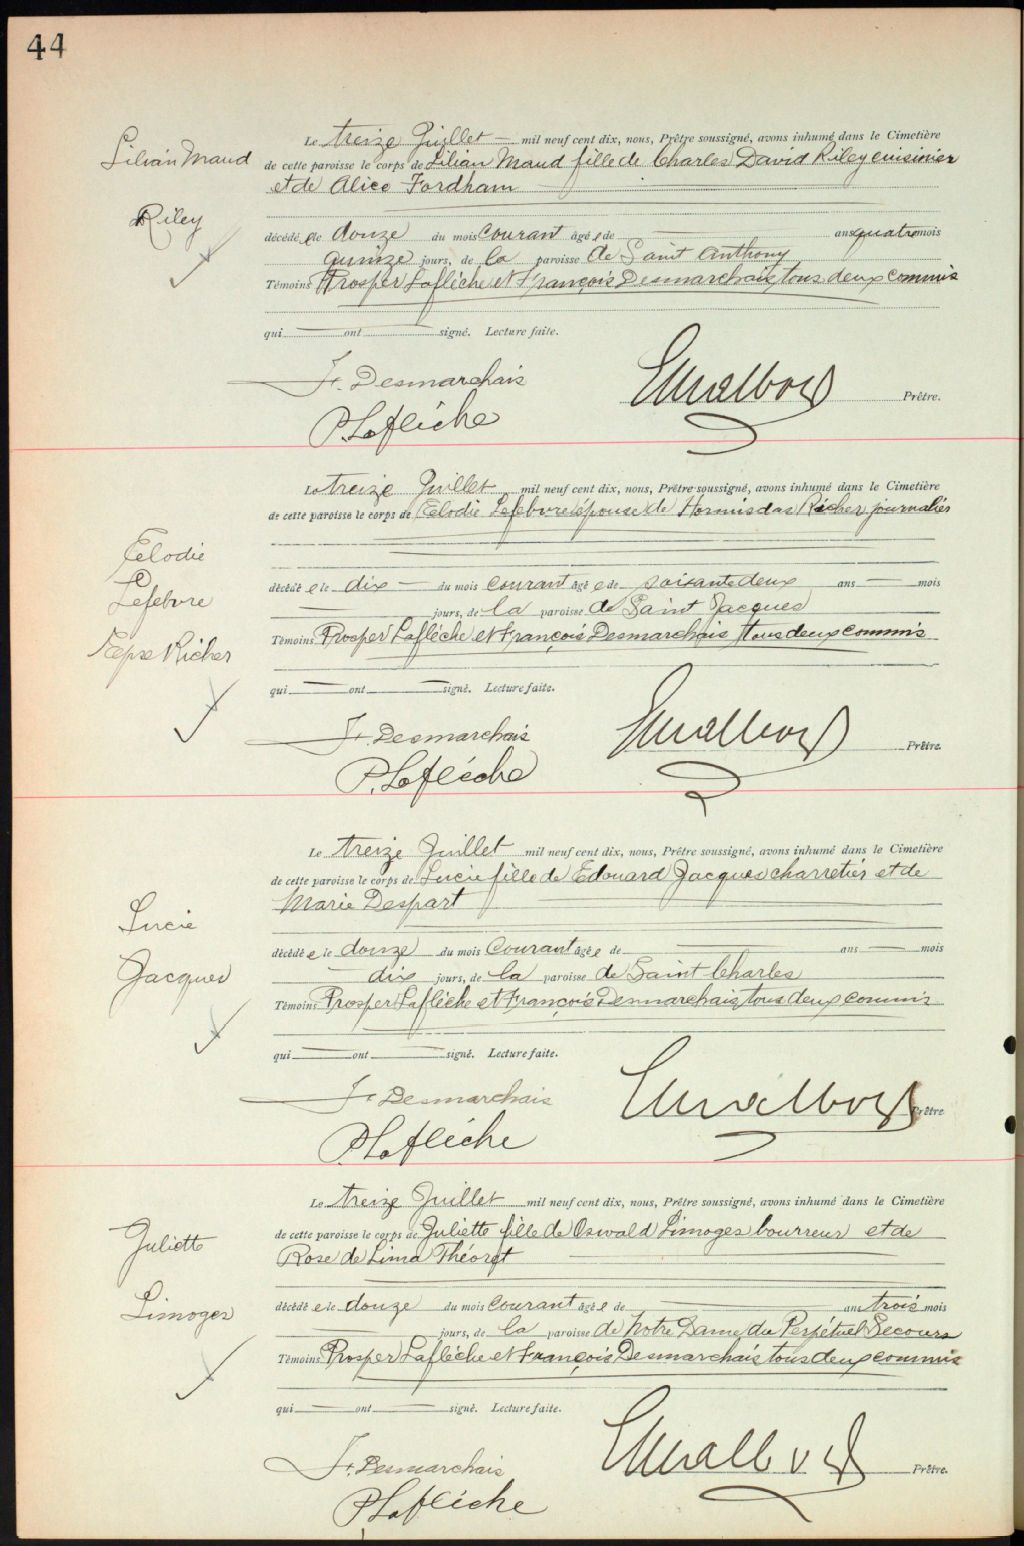 44
Lilian Maud
Riley
Le treize Juillet mil neuf cent dix, nous, Prêtre soussigné, avons inhumé dans le Cimetière
de cette paroisse le corps de Lilian Maud fille de Charles David Riley cuisinier
et de Alice Fordham
décédé e le douze du mois courant âgé e de ans quatre mois
quinze jours, de la paroisse de Saint Anthony
Témoins Prosper Laflèche et François Desmarchais, tous deux commis
qui ont signé. Lecture faite.
F. Desmarchais
P. Laflèche
Prêtre.
Eelodie
Lefebvre
Epse Richer
Le treize Juillet mil neuf cent dix, nous, Prêtre soussigné, avons inhumé dans le Cimetière
de cette paroisse le corps de Eelodie Lefebvre épouse de Hormisdas Richer journalier
décédé e le dix du mois courant âgé e de soixante deux ans mois
jours, de la paroisse de Saint Jacques
Témoins Prosper Laflèche et François Desmarchais tous deux commis
qui ont signé. Lecture faite.
F. Desmarchais
P. Laflèche
Prêtre.
Lucie
Jacques
Le treize Juillet mil neuf cent dix, nous, Prêtre soussigné, avons inhumé dans le Cimetière
de cette paroisse le corps de Lucie fille de Edouard Jacques charretier et de
Marie Despart
décédé e le douze du mois courant âgé e de ans mois
dix jours, de la paroisse de Saint Charles
Témoins Prosper Laflèche et François Desmarchais tous deux commis
qui ont signé. Lecture faite.
F. Desmarchais
P. Laflèche
Prêtre
Juliette
Limoges
Le treize Juillet mil neuf cent dix, nous, Prêtre soussigné, avons inhumé dans le Cimetière
de cette paroisse le corps de Juliette fille de Oswald Limoges bourreur et de
Rose de Lima Théoret
décédé e le douze du mois courant âgé e de ans trois mois
jours, de la paroisse de Notre Dame du Perpétuel Secours
Témoins Prosper Laflèche et François Desmarchais tous deux commis
qui ont signé. Lecture faite.
F. Desmarchais
P. Laflèche
Prêtre.